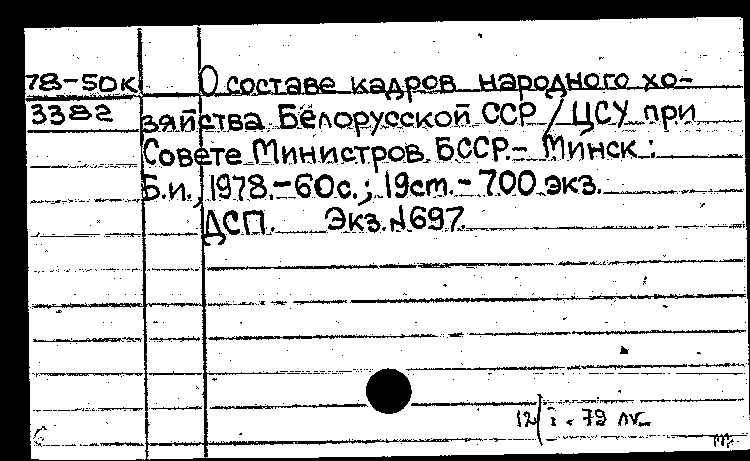 78-50к
3382
О составе кадров народного хо-
зяйства Белорусской ССР / ЦСУ при
Совете Министров БССР.- Минск :
Б.и., 1978.-60с.; 19см.- 700 экз.
ДСП. Экз.№697.